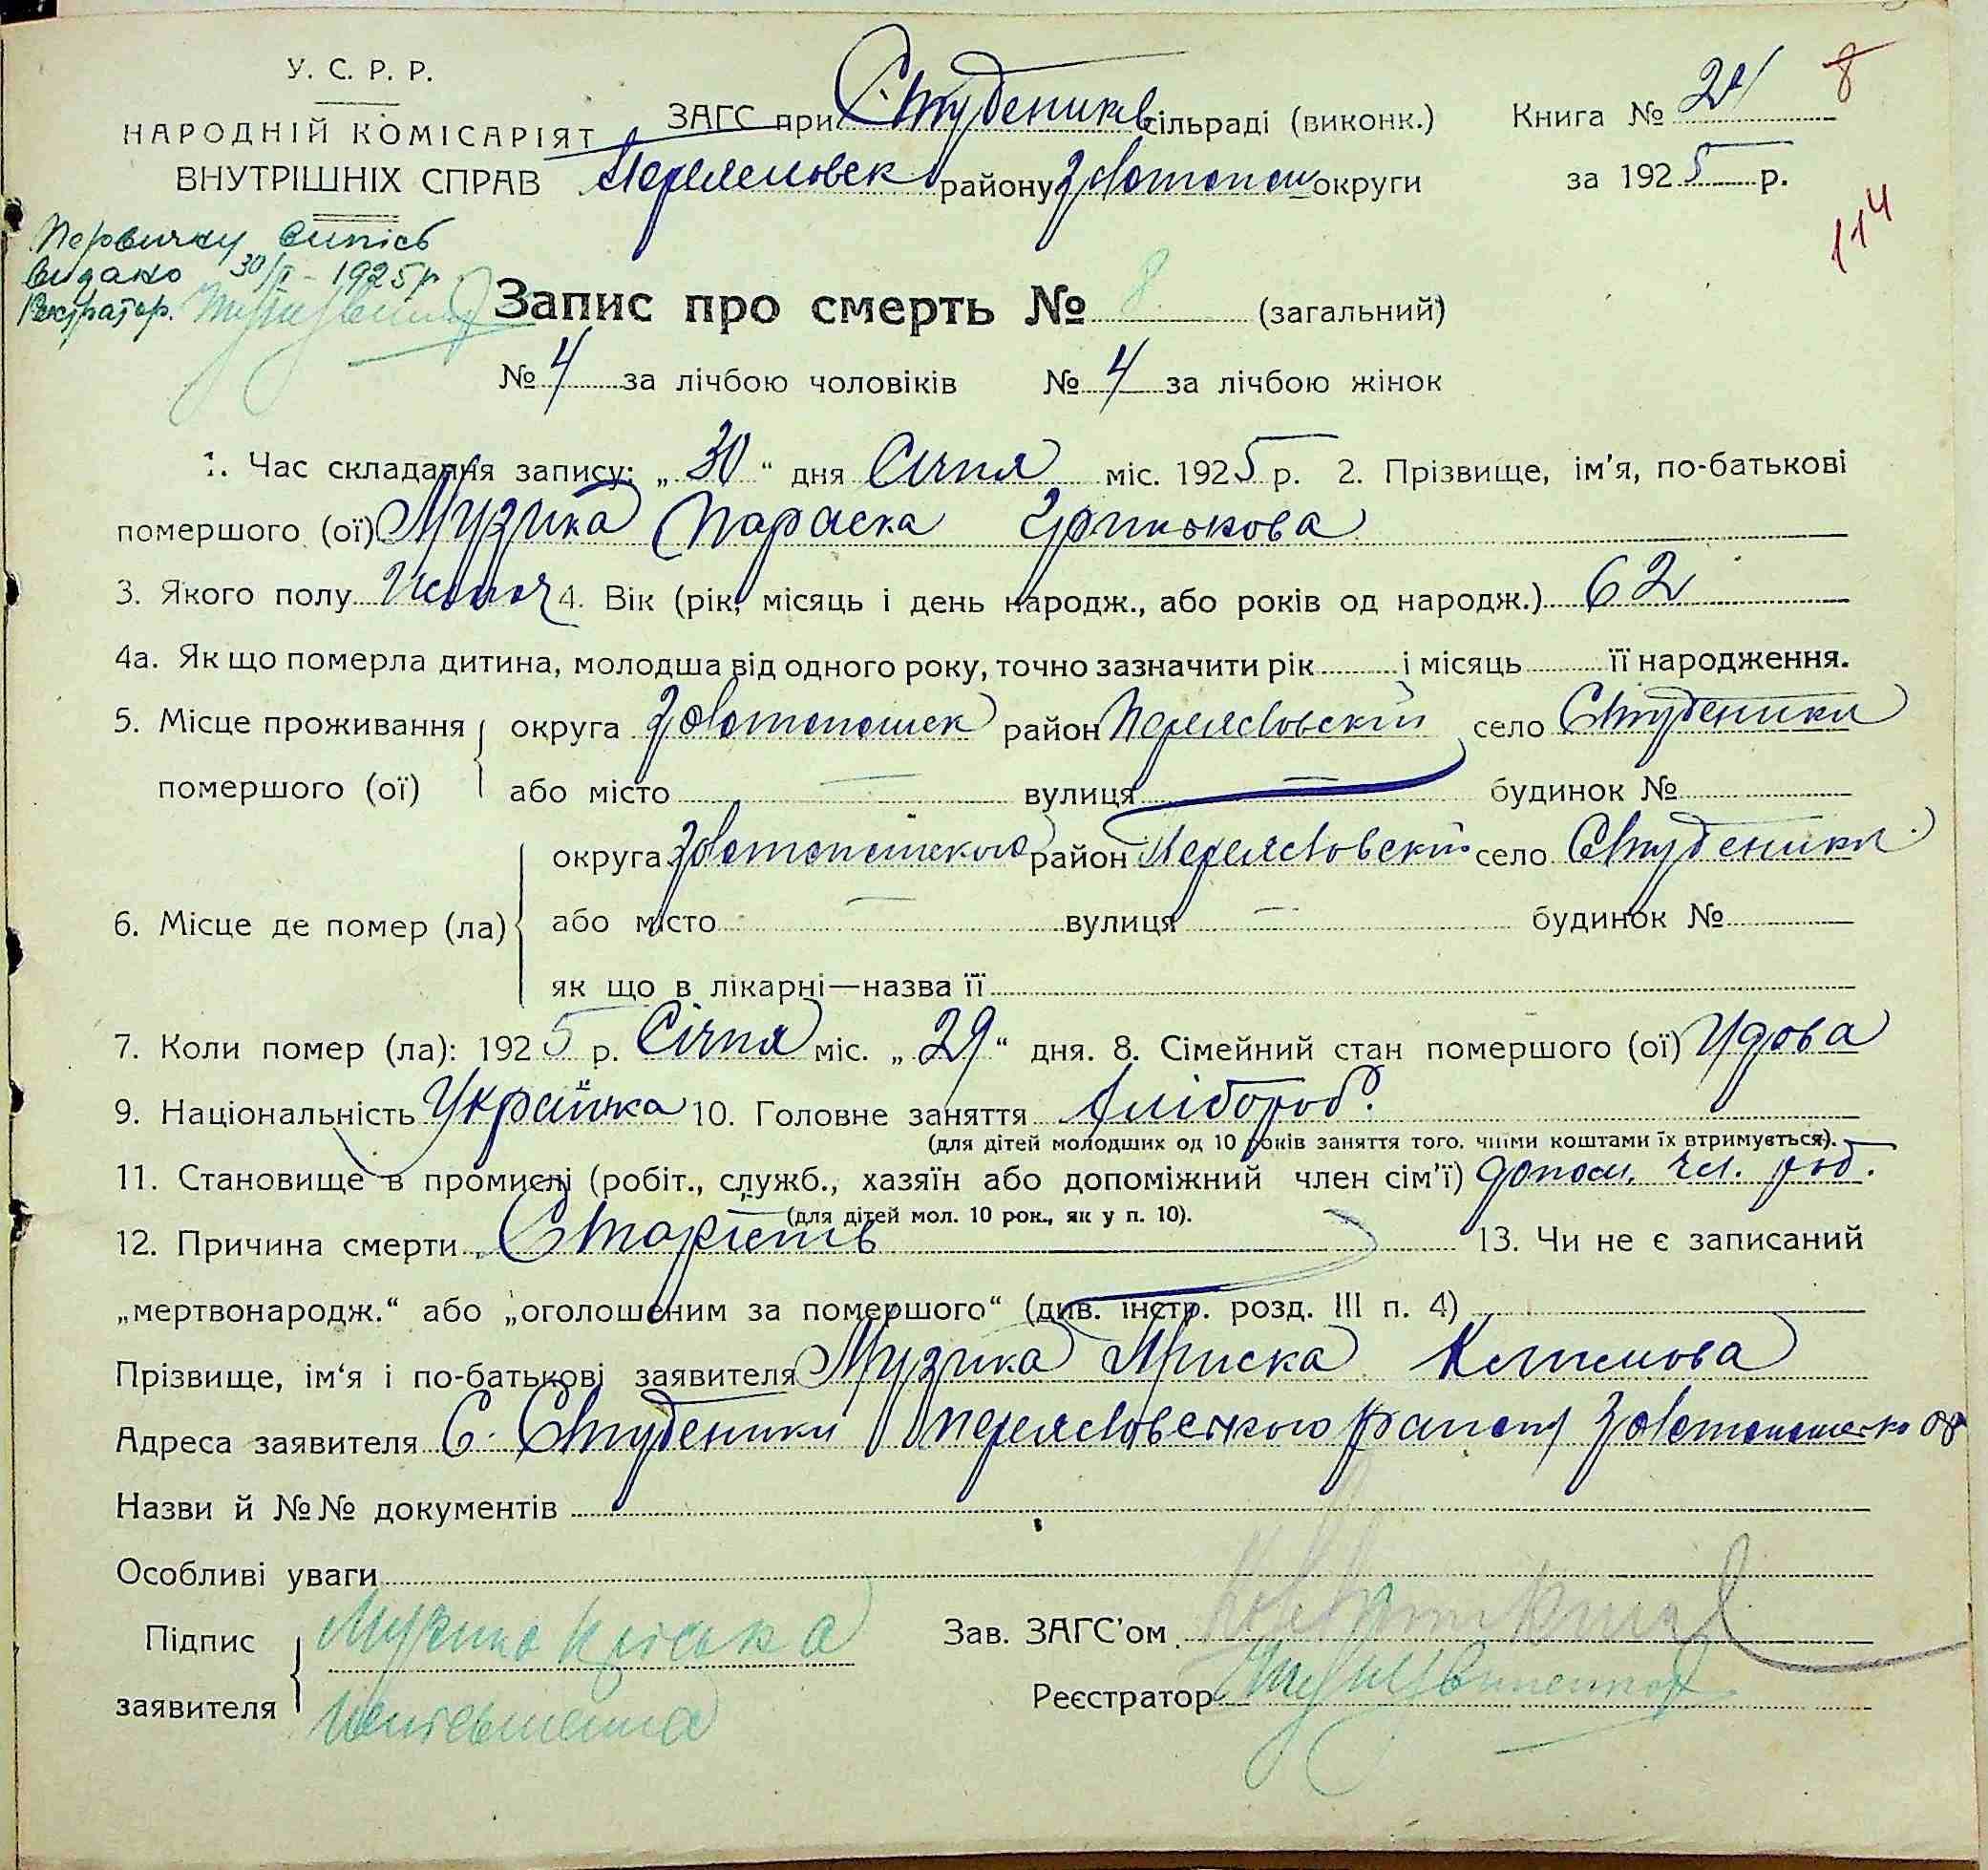 У. С. Р. Р.
НАРОДНІЙ КОМІСАРІЯТ
ВНУТРІШНІХ СПРАВ
ЗАГС при Студеників сільраді (виконк.)
Переяславск району Золотонош округи
Книга № 2 8
за 1925 р.
114
Первичну випісь
видано 30/I - 1925 р
Реєстратор.
Запис про смерть № 8 (загальний)
№ 4 за лічбою чоловіків № 4 за лічбою жінок
1. Час складання запису: „30“ дня Січня міс. 1925 р. 2. Прізвище, ім'я, по-батькові
помершого (ої) Музика Параска Грицькова
3. Якого полу Жіноч 4. Вік (рік, місяць і день народж., або років од народж.) 62
4а. Як що померла дитина, молодша від одного року, точно зазначити рік і місяць її народження.
5. Місце проживання помершого (ої) округа Золотоношск район Переяславский село Студеники
або місто — вулиця — будинок №
6. Місце де помер (ла) округа Золотоношского район Переяславский село Студеники
або місто — вулиця — будинок №
як що в лікарні—назва її
7. Коли помер (ла): 1925 р. Січня міс. „29“ дня. 8. Сімейний стан помершого (ої) Удова
9. Національність Українка 10. Головне заняття Хлібороб.
(для дітей молодших од 10 років заняття того, чиїми коштами їх втримується).
11. Становище в промислі (робіт., служб., хазяїн або допоміжний член сім'ї) допом. чл. роб.
(для дітей мол. 10 рок., як у п. 10).
12. Причина смерти Старість 13. Чи не є записаний
„мертвонародж.“ або „оголошеним за помершого“ (див. інстр. розд. III п. 4)
Прізвище, ім'я і по-батькові заявителя Музика Приска Климова
Адреса заявителя С. Студеники Переяславського району Золотоношсько ок
Назви й №№ документів
Особливі уваги
Підпис заявителя Музика Пріська
неписьменна
Зав. ЗАГС'ом
Реєстратор